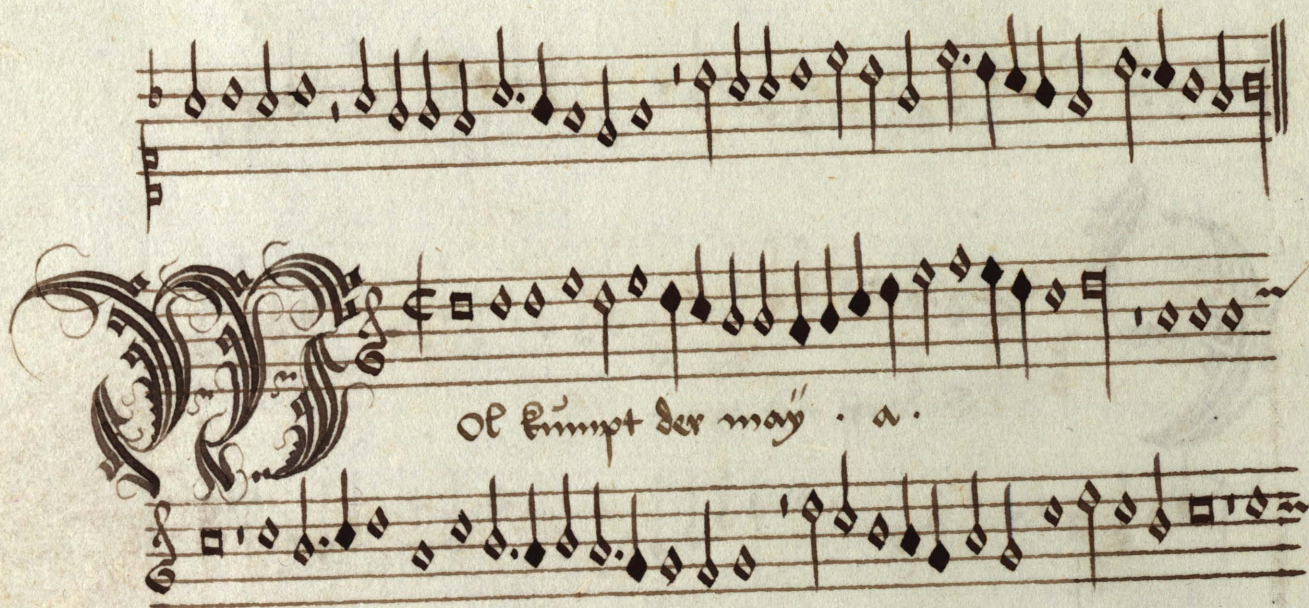 Wol kumpt der maÿ . a .